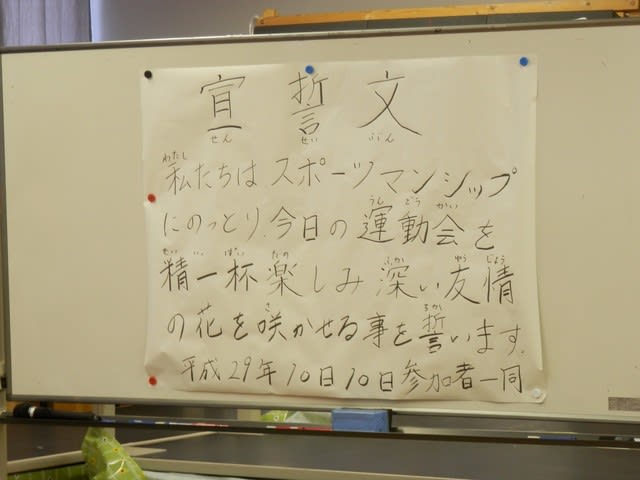 宣誓文
せん せい ぶん
わたし
私たちは スポーツマンシップ
うん どう かい
にのっとり、今日の運動会を
せい いっ ぱい たの ふか ゆう じょう
精一杯楽しみ 深い友情
さ ちか
の花を咲かせる事を誓います。
平成29年10日10日参加者一同